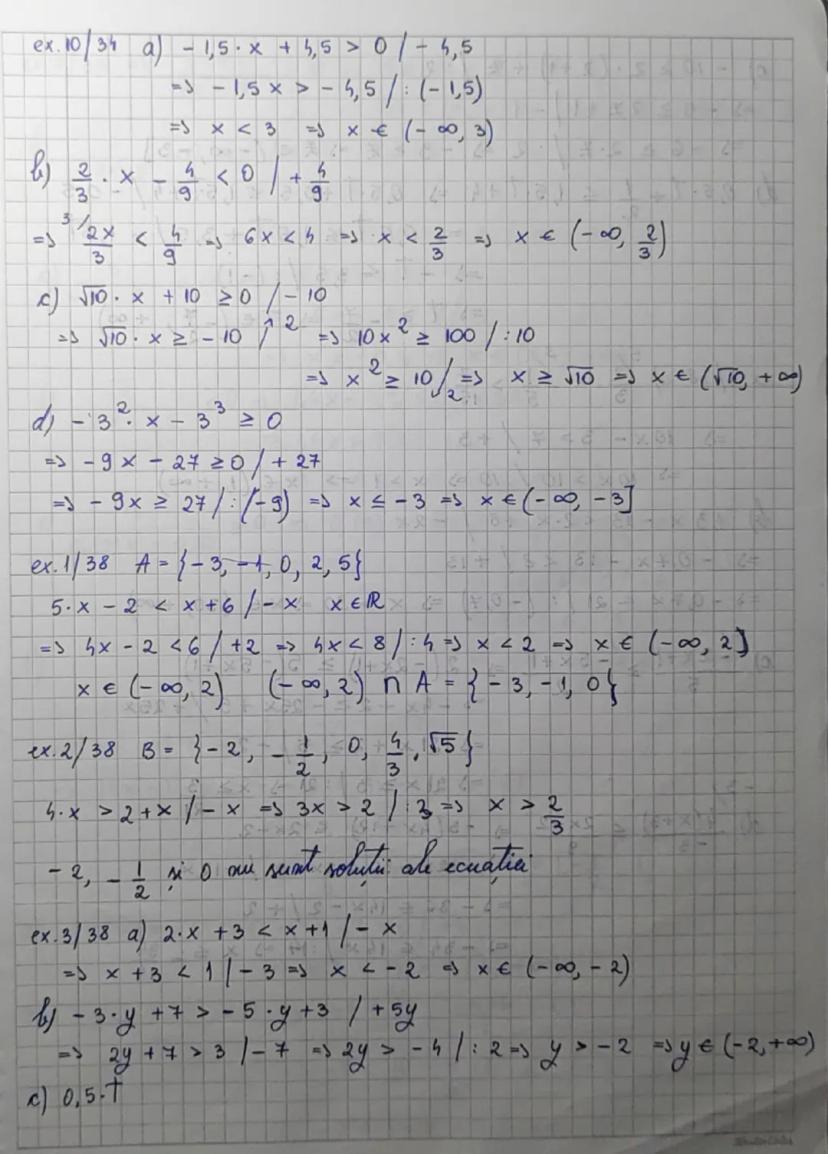 ex.10/34 a) - 1,5 · x + 4,5 > 0 / - 4,5
=> - 1,5 x > - 4,5 / : (- 1,5)
=> x < 3 => x ∈ (- ∞, 3)
b) 2/3 · x - 4/9 < 0 / + 4/9
=> ³⁄ 2x/3 < 4/9 => 6x < 4 => x < 2/3 => x ∈ (- ∞, 2/3)
c) √10 · x + 10 ≥ 0 / - 10
=> √10 · x ≥ - 10 /↑² => 10x² ≥ 100 / : 10
=> x² ≥ 10 /₂ => x ≥ √10 => x ∈ (√10, + ∞)
d) - 3² · x - 3³ ≥ 0
=> - 9x - 27 ≥ 0 / + 27
=> - 9x ≥ 27 / : (-9) => x ≤ - 3 => x ∈ (- ∞, - 3]
ex.1/38 A = {- 3, - 1, 0, 2, 5}
5 · x - 2 < x + 6 / - x x ∈ ℝ
=> 4x - 2 < 6 / + 2 => 4x < 8 / : 4 => x < 2 => x ∈ (- ∞, 2]
x ∈ (- ∞, 2) (- ∞, 2) ∩ A = {- 3, - 1, 0}
ex.2/38 B = {- 2, - 1/2, 0, 4/3, √5}
4 · x > 2 + x / - x => 3x > 2 / : 3 => x > 2/3
- 2, - 1/2 și 0 nu sunt soluții ale ecuației
ex.3/38 a) 2 · x + 3 < x + 1 / - x
=> x + 3 < 1 / - 3 => x < - 2 => x ∈ (- ∞, - 2)
b) - 3 · y + 7 > - 5 · y + 3 / + 5y
=> 2y + 7 > 3 / - 7 => 2y > - 4 / : 2 => y > - 2 => y ∈ (- 2, + ∞)
c) 0,5 · T